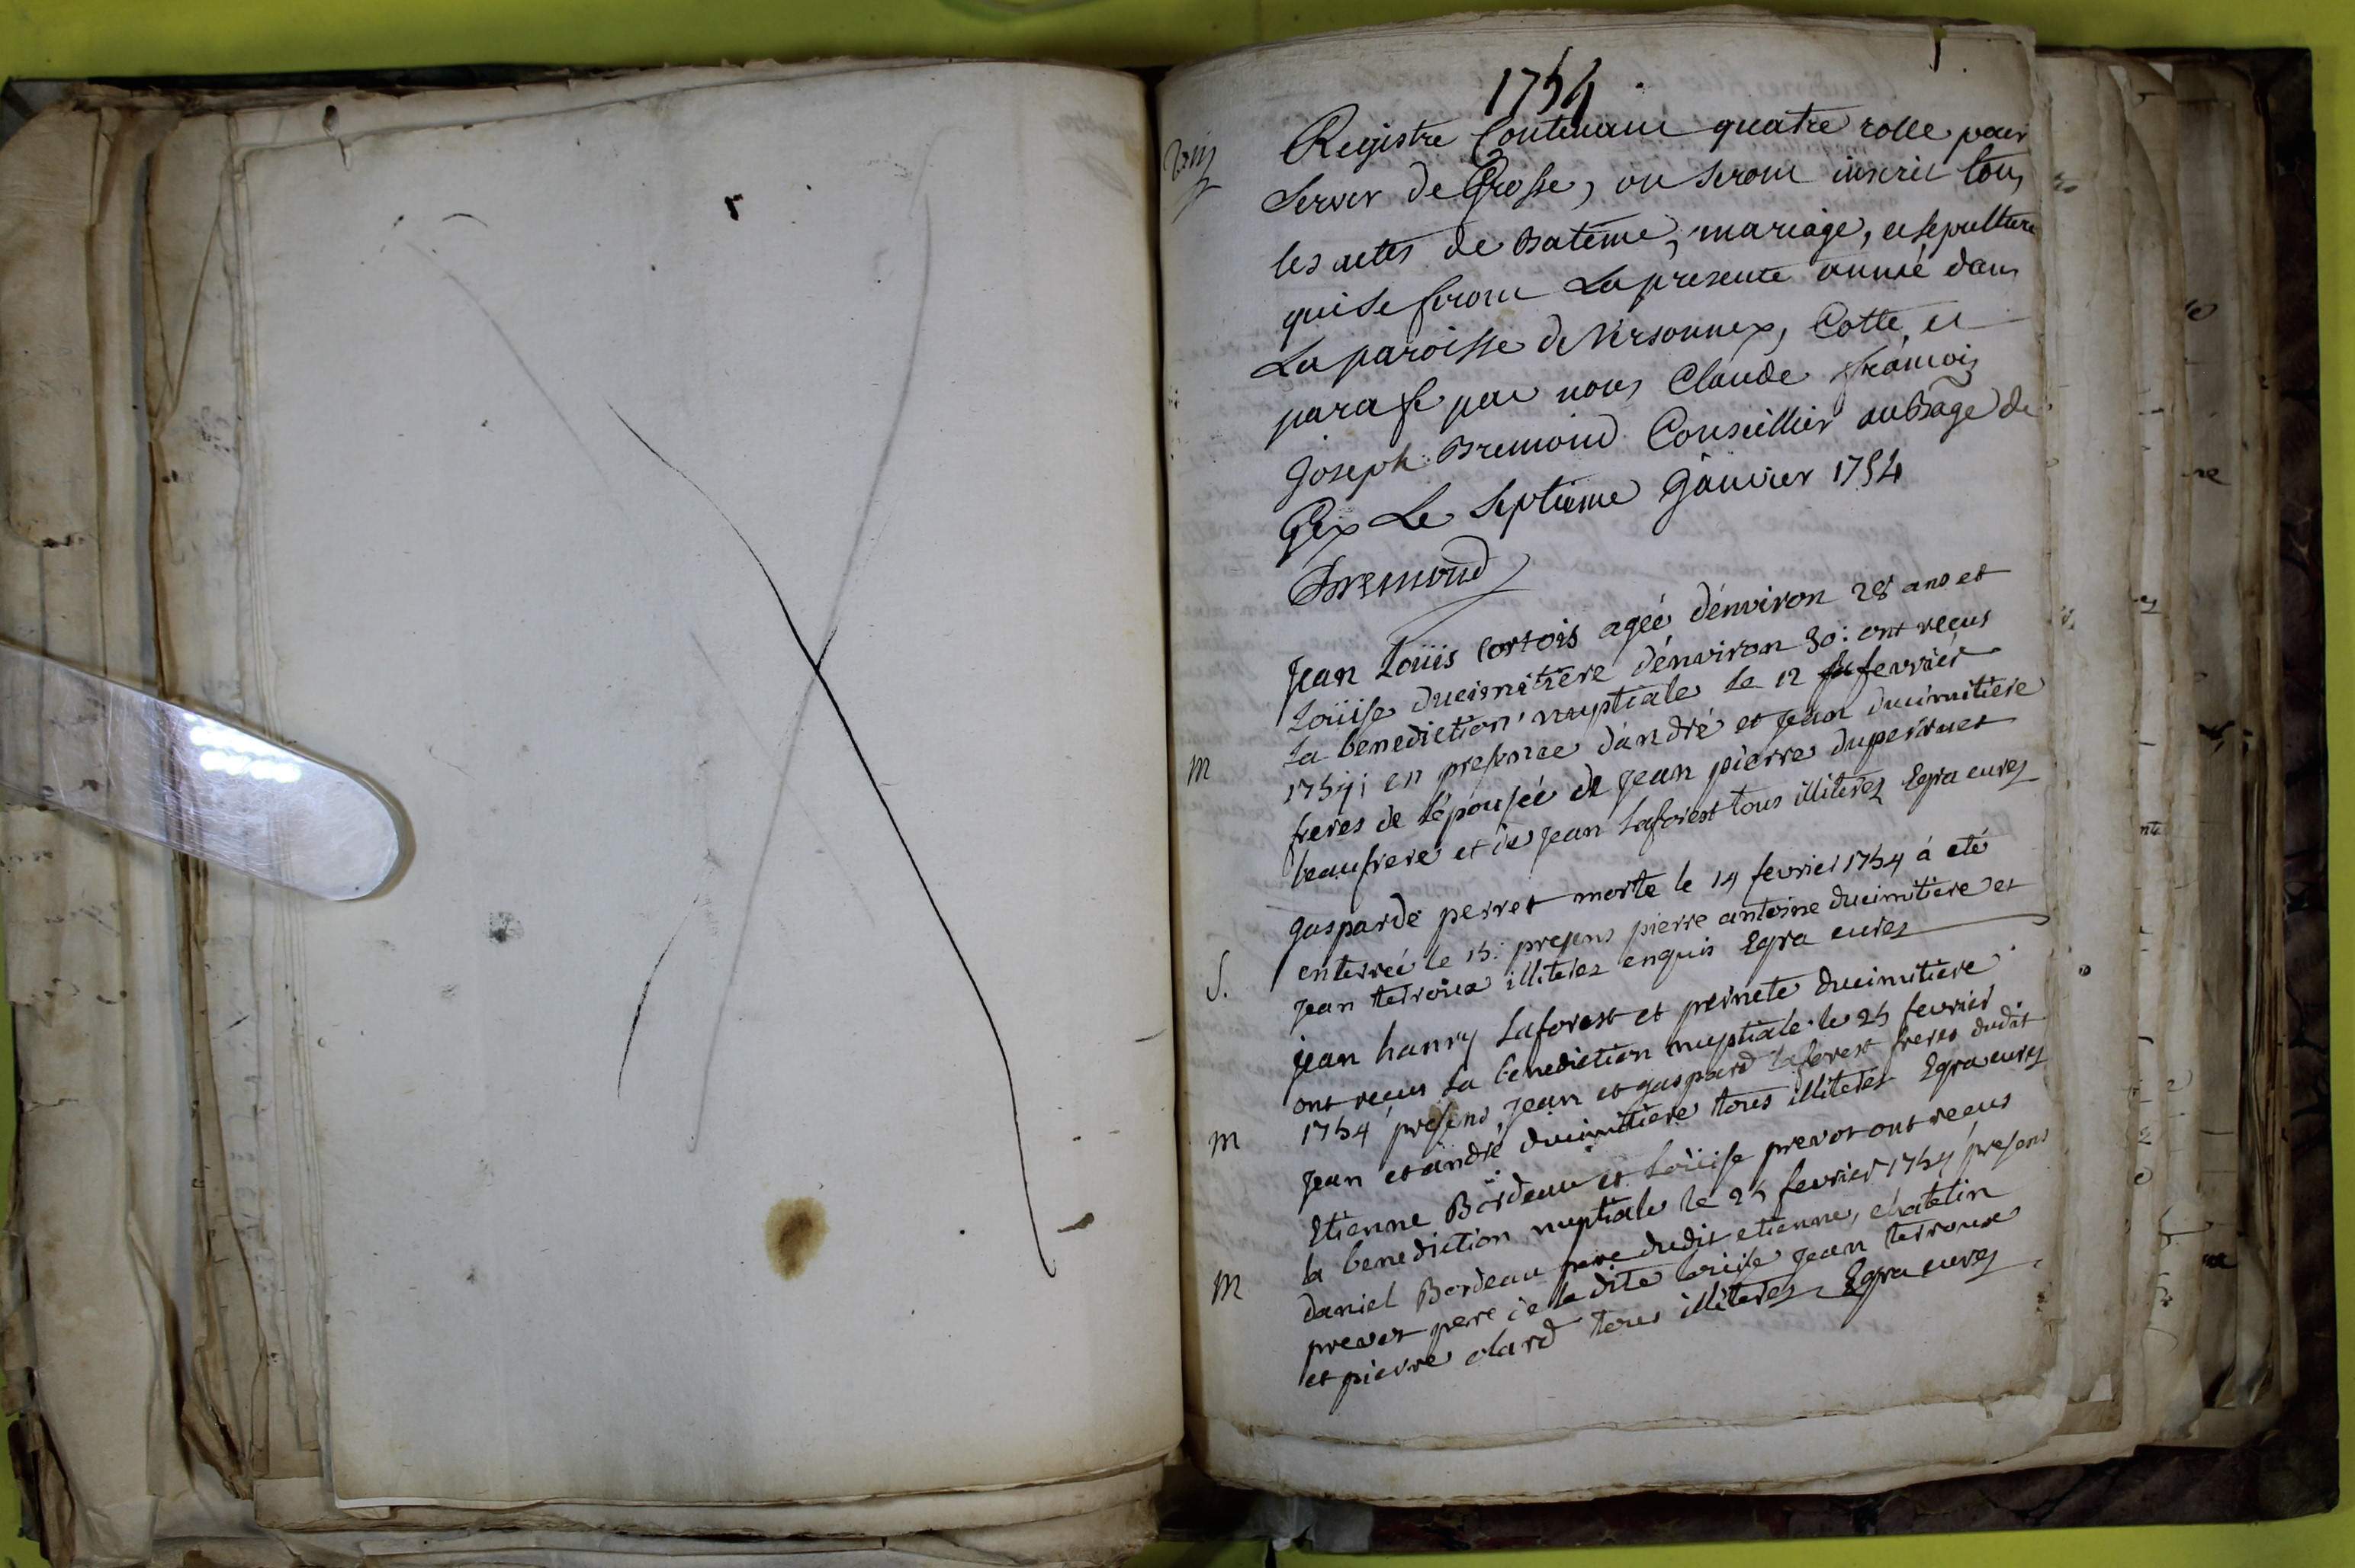 1754
Registre Contenant quatre rolle pour
Server de Grosse, ou seront inscrit tous
les actes de Batême, mariage, et sepulture
qui se feront La presente année dans
La paroisse de Versonnex, Cotté et
parafé par nous Claude françois
Joseph Bremond Conseillier au Bage de
Gex Le septieme Janvier 1754
Bremond
Jean Loüis Cortois ageé d'environ 28 ans et
Loüise ducimitiere d'environ 30: ont reçus
la benediction nuptiale le 12 fevrier
m
1754; en presence d'andré et Jean ducimitiere
freres de l'épouseé de Jean pierre duperruet
beaufrere et de Jean Laforest tous illiterez Egra curez
gasparde perret morte le 14 fevrier 1754 à eté
S.
enterreé le 15: presens pierre antoine ducimitiere et
Jean terroux illiterez enquis Egra curez
jean hanry Laforest et pernete ducimitiere
ont reçus la benediction nuptiale le 25 fevrier
m
1754 presens, Jean et gaspard laforest freres dudit
Jean et andré ducimitiere tous illiterez Egra curez
Etienne Bordeau et Loüise prevot ont reçus
la benediction nuptiale le 25 fevrier 1754 presens
m
daniel Bordeau pere dudit etienne, chatelin
prevot pere de la dite loüise Jean terroux
et pierre olard tous illiterez Egra curez